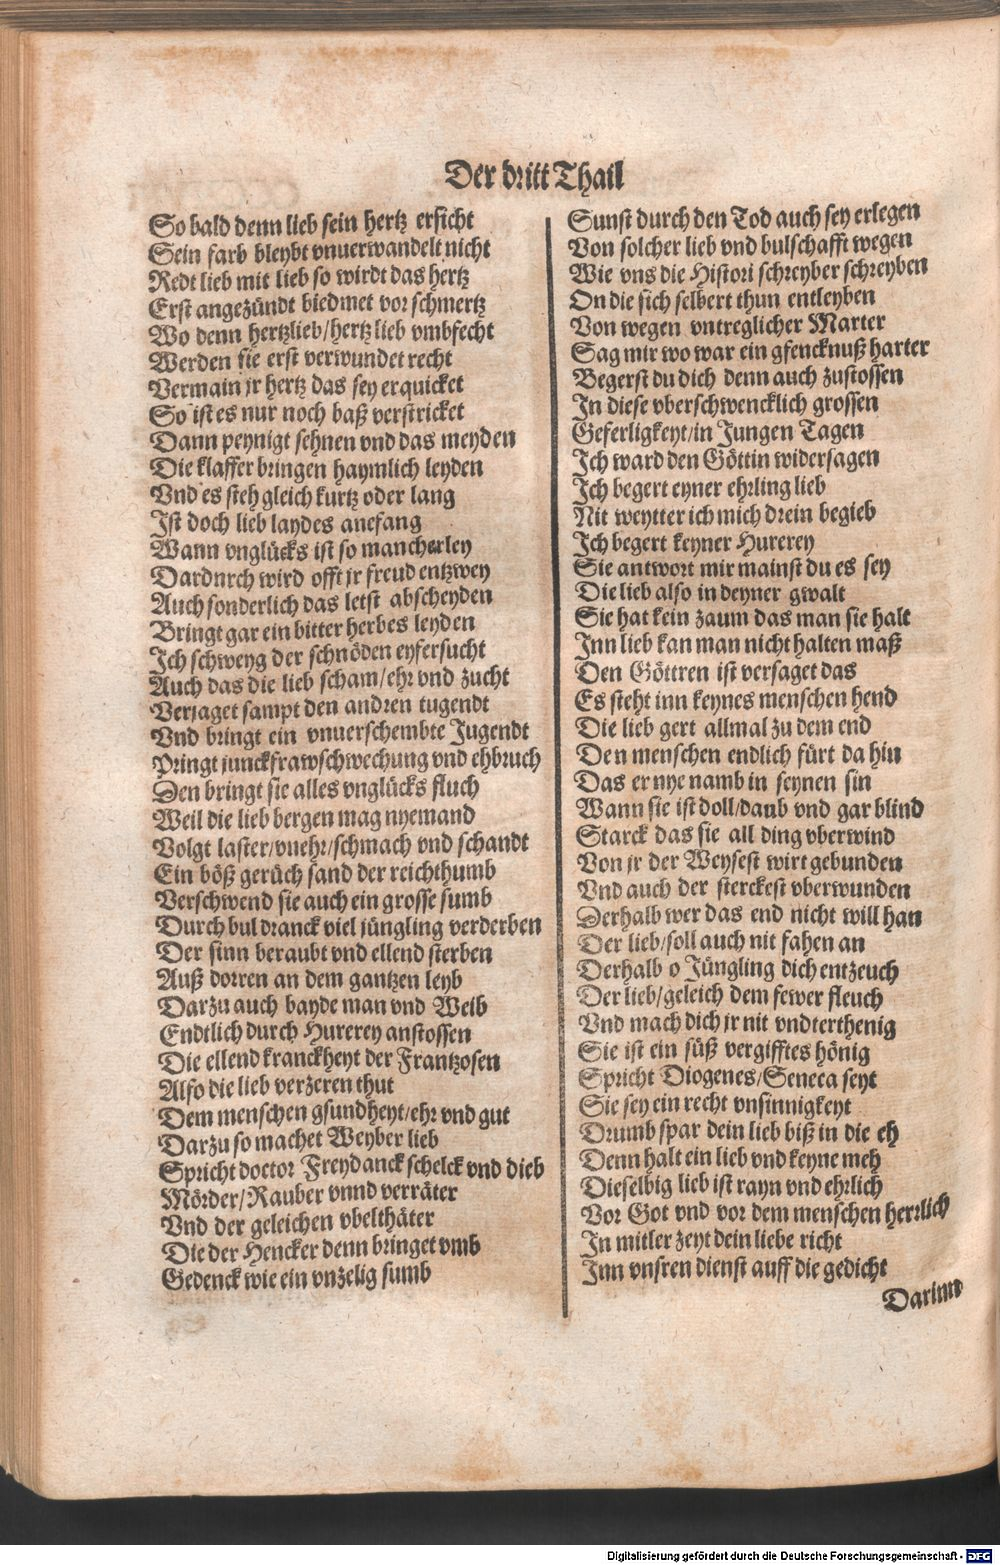 Der dritt Thail
So bald denn lieb sein hertz ersicht
Sein farb bleybt vnuerwandelt nicht
Redt lieb mit lieb so wirdt das hertz
Erst angezündt biedmet vor schmertz
Wo denn hertzlieb/hertz lieb vmbfecht
Werden sie erst verwundet recht
Vermain jr hertz das sey erquicket
So ist es nur noch baß verstricket
Dann peynigt sehnen vnd das meyden
Die klaffer bringen haymlich leyden
Vnd es steh gleich kurtz oder lang
Ist doch lieb laydes anefang
Wann vnglücks ist so mancherley
Dardnrch wird offt jr freud entzwey
Auch sonderlich das letst abscheyden
Bringt gar ein bitter herbes leyden
Ich schweyg der schnöden eyfersucht
Auch das die lieb scham/ehr vnd zucht
Verjaget sampt den andren tugendt
Vnd bringt ein vnuerschembte Jugendt
Pringt junckfrawschwechung vnd ehbruch
Den bringt sie alles vnglücks fluch
Weil die lieb bergen mag nyemand
Volgt laster/vnehr/schmach vnd schandt
Ein böß gerüch sand der reichthumb
Verschwend sie auch ein grosse sumb
Durch bul dranck viel jüngling verderben
Der sinn beraubt vnd ellend sterben
Auß dorren an dem gantzen leyb
Darzu auch bayde man vnd Weib
Endtlich durch Hurerey anstossen
Die ellend kranckheyt der Frantzosen
Also die lieb verzeren thut
Dem menschen gsundheyt/ehr vnd gut
Darzu so machet Weyber lieb
Spricht doctor Freydanck schelck vnd dieb
Mörder/Rauber vnnd verräter
Vnd der geleichen vbelthäter
Die der Hencker denn bringet vmb
Gedenck wie ein vnzelig sumb
Sunst durch den Tod auch sey erlegen
Von solcher lieb vnd bulschafft wegen
Wie vns die Histori schreyber schreyben
On die sich selbert thun entleyben
Von wegen vntreglicher Marter
Sag mir wo war ein gfencknuß harter
Begerst du dich denn auch zustossen
In diese vberschwencklich grossen
Geferligkeyt/in Jungen Tagen
Ich ward den Göttin widersagen
Ich begert eyner ehrling lieb
Nit weytter ich mich drein begieb
Ich begert keyner Hurerey
Sie antwort mir mainst du es sey
Die lieb also in deyner gwalt
Sie hat kein zaum das man sie halt
Inn lieb kan man nicht halten maß
Den Göttren ist versaget das
Es steht inn keynes menschen hend
Die lieb gert allmal zu dem end
Den menschen endlich fürt da hin
Das er nye namb in seynen sin
Wann sie ist doll/daub vnd gar blind
Starck das sie all ding vberwind
Von jr der Weysest wirt gebunden
Vnd auch der sterckest vberwunden
Derhalb wer das end nicht will han
Der lieb/soll auch nit fahen an
Derhalb o Jüngling dich entzeuch
Der lieb/geleich dem fewer fleuch
Vnd mach dich jr nit vndterthenig
Sie ist ein süß vergifftes hönig
Spricht Diogenes/Seneca seyt
Sie sey ein recht vnsinnigkeyt
Drumb spar dein lieb biß in die eh
Denn halt ein lieb vnd keyne meh
Dieselbig lieb ist rayn vnd ehrlich
Vor Got vnd vor dem menschen herrlich
In mitler zeyt dein liebe richt
Inn vnsren dienst auff die gedicht
Darinn
Digitalisierung gefördert durch die Deutsche Forschungsgemeinschaft - DFG